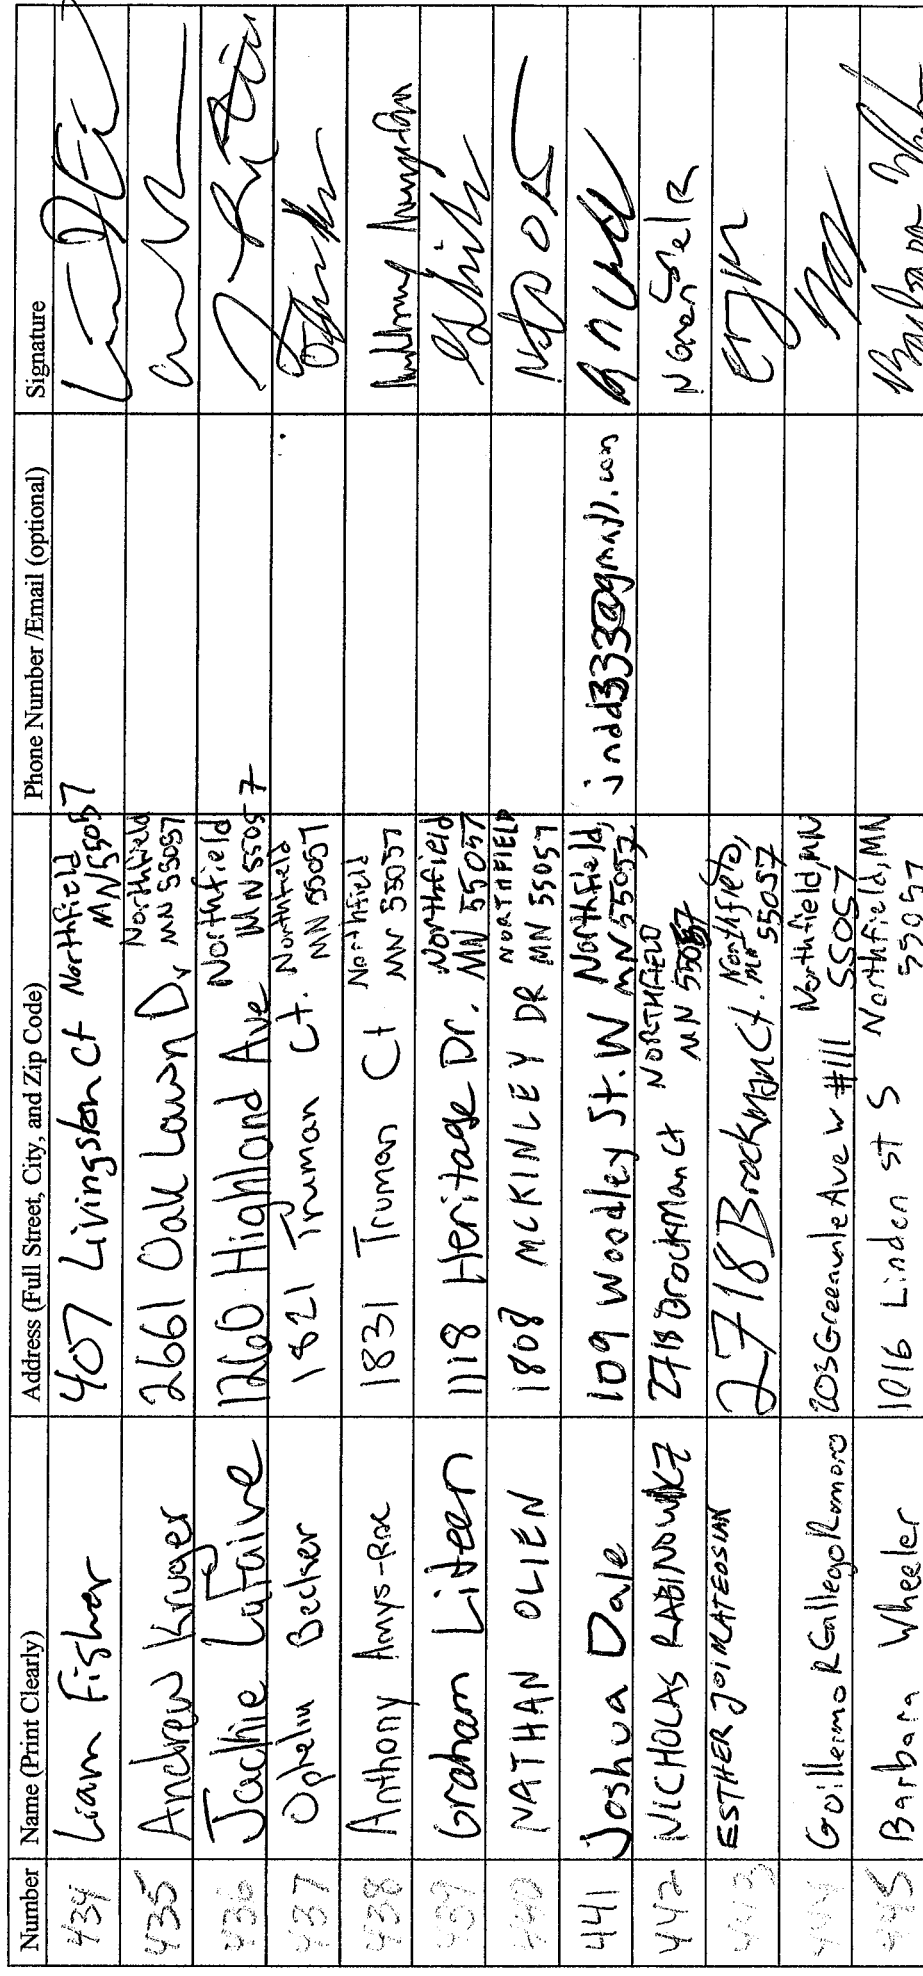 Number Name (Print Clearly) Address (Full Street, City, and Zip Code) Phone Number /Email (optional) Signature
434 Liam Fisher 407 Livingston Ct Northfield MN 55057
435 Andrew Kruger 2661 Oak Lawn Dr Northfield MN 55057
436 Jackie LaFaive 1260 Highland Ave Northfield MN 55057
437 Ophelia Becker 1821 Truman Ct. Northfield MN 55057
438 Anthony Amys-Roe 1831 Truman Ct Northfield MN 55057
439 Graham Liteen 1118 Heritage Dr. Northfield MN 55057
440 NATHAN OLIEN 1808 MCKINLEY DR NORTHFIELD MN 55057
441 Joshua Dale 109 Woodley St. W Northfield, MN 55057 jndd333@gmail.com
442 NICHOLAS RABINOWITZ 2718 Brockman Ct NORTHFIELD MN 55057
443 ESTHER 2718 Brockman Ct. Northfield, MN 55057
444 Guillermo R Gallego Romero 203 Greenvale Ave W #111 Northfield, MN 55057
445 Barbara Wheeler 1016 Linden St S Northfield, MN 55057